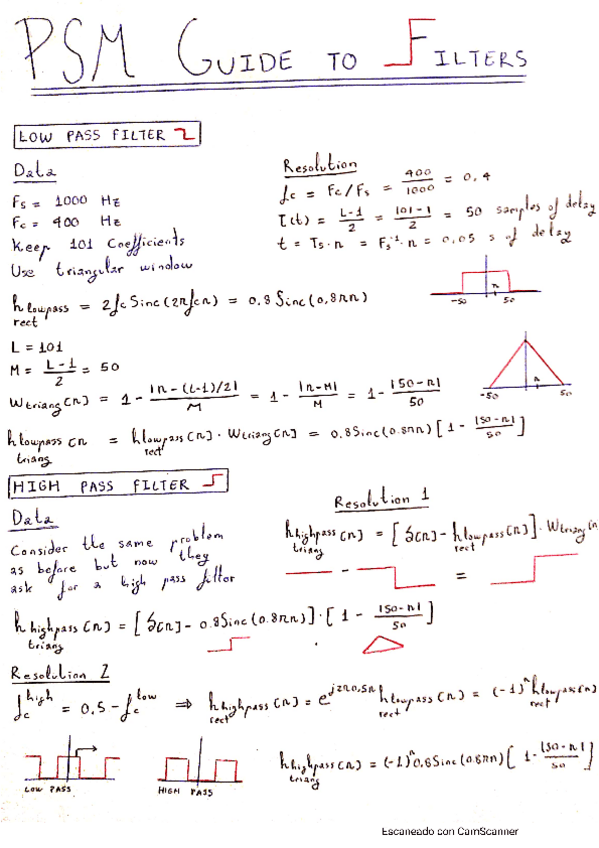 PSM GUIDE TO FILTERS
LOW PASS FILTER
Data
Fs = 1000 Hz
Fc = 400 Hz
Keep 101 Coefficients
Use triangular window
Resolution
fc = Fc/Fs = 400/1000 = 0,4
τ(t) = L-1/2 = 101-1/2 = 50 samples of delay
t = Ts·n = Fs⁻¹·n = 0,05 s of delay
h lowpass rect = 2fc Sinc(2πfcn) = 0.8 Sinc(0,8πn)
-50 n 50
L = 101
M = L-1/2 = 50
Wtriang[n] = 1 - |n-(L-1)/2|/M = 1 - |n-M|/M = 1 - |50-n|/50
-50 n 50
h lowpass triang [n = h lowpass rect [n] · Wtriang[n] = 0.8Sinc(0.8πn) [1 - |50-n|/50]
HIGH PASS FILTER
Data
Consider the same problem
as before but now they
ask for a high pass filter
Resolution 1
h highpass triang [n] = [δ[n] - h lowpass rect [n]] · Wtriang[n
- =
h highpass triang [n] = [δ[n] - 0.8Sinc(0.8πn)] · [1 - |50-n|/50]
Resolution 2
fc^high = 0.5 - fc^low ⇒ h highpass rect [n] = e^j2π0.5n h lowpass rect [n] = (-1)^n h lowpass rect [n]
LOW PASS
HIGH PASS
h highpass triang [n] = (-1)^n 0.8Sinc(0.8πn) [1 - |50-n|/50]
Escaneado con CamScanner